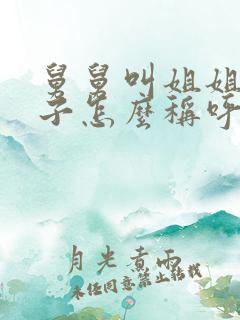 舅舅叫姐姐
子怎麼稱呼
月光煮雨
未经同意禁止转载